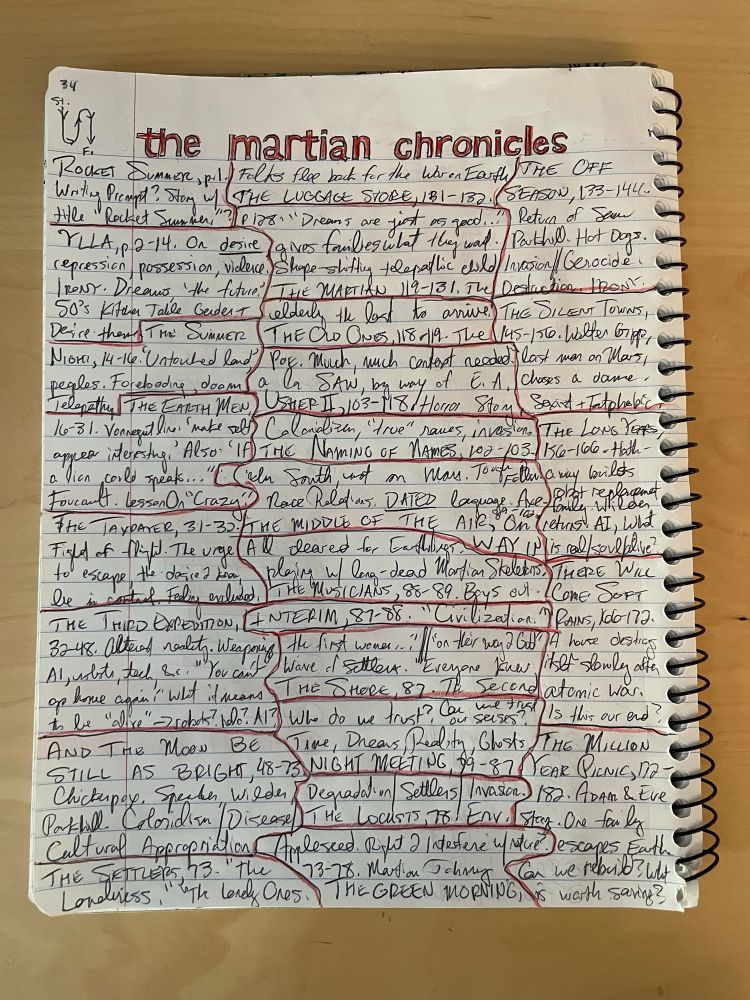 34
St.
Fi.
the martian chronicles
ROCKET SUMMER, p.1.
Writing Prompt? Story w/
title "Rocket Summer."?
YLLA, p.2-14. On desire
repression, possession, violence,
IRONY. Dreams 'the future.'
50's Kitchen Table Gender +
Desire theme
THE SUMMER
NIGHT, 14-16. "Untouched land"
peoples. Foreboding, doom
Telepathy
THE EARTH MEN,
16-31. Vonnegut line: 'make self
appear interesting.' Also: 'If
a lion could speak..."
Foucault. Lesson On "Crazy"
THE TAXPAYER, 31-32.
Fight or flight. The urge
to escape, the desire 2
be in control. Feeling excluded.
THE THIRD EXPEDITION,
32-48. Altered reality. Weaponizing
AI, robots, tech &c. "You can't
go home again." What it means
to be "alive" → robots? AI?
AND THE MOON BE
STILL AS BRIGHT, 48-73
Chickenpox. Spender, Wilder
Parkhill. Colonialism/Disease/
Cultural Appropriation
THE SETTLERS, 73. "The
Loneliness." "The Lonely Ones.
THE GREEN MORNING,
73-78. Martian Johnny
Appleseed. Right 2 Interfere w/ nature?
THE LOCUSTS, 78. Env.
Degradation/Settlers/Invasion
NIGHT MEETING, 79-87
Time, Dreams, Reality, Ghosts
Who do we trust? Can we trust
our senses?
THE SHORE, 87. The Second
Wave of settlers. "Everyone knew
the first women..." // "on their way 2 God"
INTERIM, 87-88. "Civilization."
THE MUSICIANS, 88-89. Boys out
playing w/ long-dead Martian Skeletons.
All cleared for Earthlings.
WAY IN
THE MIDDLE OF THE AIR, On
Race Relations. DATED language.
South, just on Mars.
THE NAMING OF NAMES, 102-103.
Colonialism, "true" names, invasion
USHER II, 103-118. Horror Story
a la SAW, by way of E.A.
POE. Much, much context needed
THE OLD ONES, 118-119. The
elderly the last to arrive
THE MARTIAN 119-131. The
Shape-shifting telepathic child
gives families what they want.
p128: "Dreams are just as good..."
THE LUGGAGE STORE, 131-132.
Folks flee back for the War on Earth
THE OFF
SEASON, 133-144.
Return of Sam
Parkhill. Hot Dogs.
Invasion//Genocide.
Destruction. IRONY.
THE SILENT TOWNS,
145-156. Walter Gripp,
last man on Mars,
chases a dame.
Sexist + Fatphobic.
THE LONG YEARS,
156-166. Hath-
away builds
robot replacement
family. Wilder
returns. AI, What
is real/soul/alive?
THERE WILL
COME SOFT
RAINS, 166-172.
A house destroys
itself slowly after
atomic war.
Is this our end?
THE MILLION
YEAR PICNIC, 172-
182. ADAM & Eve
Story. One family
escapes Earth.
Can we rebuild? What
is worth saving?